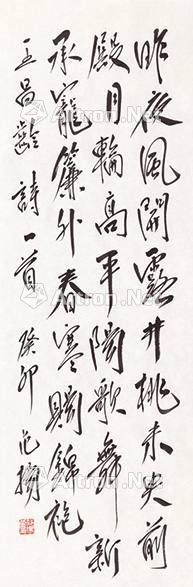 昨夜風開露井桃未央前
殿月輪高平陽歌舞新
承寵簾外春寒賜錦袍
王昌齡詩一首 癸卯
Artron.Net